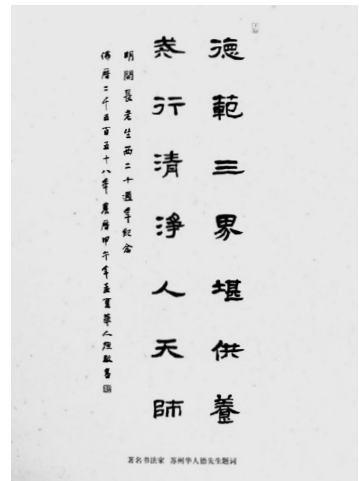 德範三界堪供養
眾行清淨人天師
明開長老生西二十週年紀念
佛曆二千五百五十八年 農曆甲午年孟夏華人德敬書
著名书法家 苏州华人德先生题词